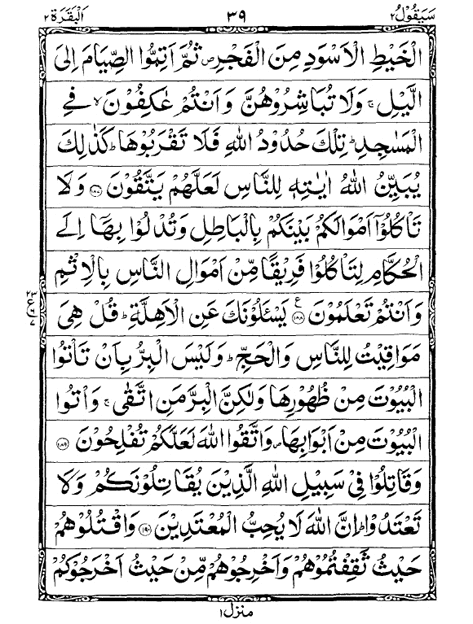 سَيَقُوۡلُ ٢ ٣٩ اَلۡبَقَرَة ٢
الۡخَيۡطِ الۡاَسۡوَدِ مِنَ الۡفَجۡرِ ص ثُمَّ اَتِمُّوا الصِّيَامَ اِلَى
الَّيۡلِ ۚ وَلَا تُبَاشِرُوۡهُنَّ وَاَنۡتُمۡ عٰكِفُوۡنَ ۙ فِي
الۡمَسٰجِدِ ؕ تِلۡكَ حُدُوۡدُ اللّٰهِ فَلَا تَقۡرَبُوۡهَا ؕ كَذٰلِكَ
يُبَيِّنُ اللّٰهُ اٰيٰتِهٖ لِلنَّاسِ لَعَلَّهُمۡ يَتَّقُوۡنَ ﴿١٨٧﴾ وَلَا
تَاۡكُلُوۡۤا اَمۡوَالَكُمۡ بَيۡنَكُمۡ بِالۡبَاطِلِ وَتُدۡلُوۡا بِهَاۤ اِلَى
الۡحُكَّامِ لِتَاۡكُلُوۡا فَرِيۡقًا مِّنۡ اَمۡوَالِ النَّاسِ بِالۡاِثۡمِ
وَاَنۡتُمۡ تَعۡلَمُوۡنَ ﴿١٨٨﴾ ع يَسۡـَٔلُوۡنَكَ عَنِ الۡاَهِلَّةِ ؕ قُلۡ هِىَ
مَوَاقِيۡتُ لِلنَّاسِ وَالۡحَجِّ ؕ وَلَيۡسَ الۡبِرُّ بِاَنۡ تَاۡتُوا
الۡبُيُوۡتَ مِنۡ ظُهُوۡرِهَا وَلٰكِنَّ الۡبِرَّ مَنِ اتَّقٰى ۚ وَاۡتُوا
الۡبُيُوۡتَ مِنۡ اَبۡوَابِهَا ۪ وَاتَّقُوا اللّٰهَ لَعَلَّكُمۡ تُفۡلِحُوۡنَ ﴿١٨٩﴾
وَقَاتِلُوۡا فِىۡ سَبِيۡلِ اللّٰهِ الَّذِيۡنَ يُقَاتِلُوۡنَكُمۡ وَلَا
تَعۡتَدُوۡا ؕ اِنَّ اللّٰهَ لَا يُحِبُّ الۡمُعۡتَدِيۡنَ ﴿١٩٠﴾ وَاقۡتُلُوۡهُمۡ
حَيۡثُ ثَقِفۡتُمُوۡهُمۡ وَاَخۡرِجُوۡهُمۡ مِّنۡ حَيۡثُ اَخۡرَجُوۡكُمۡ
منزل ١